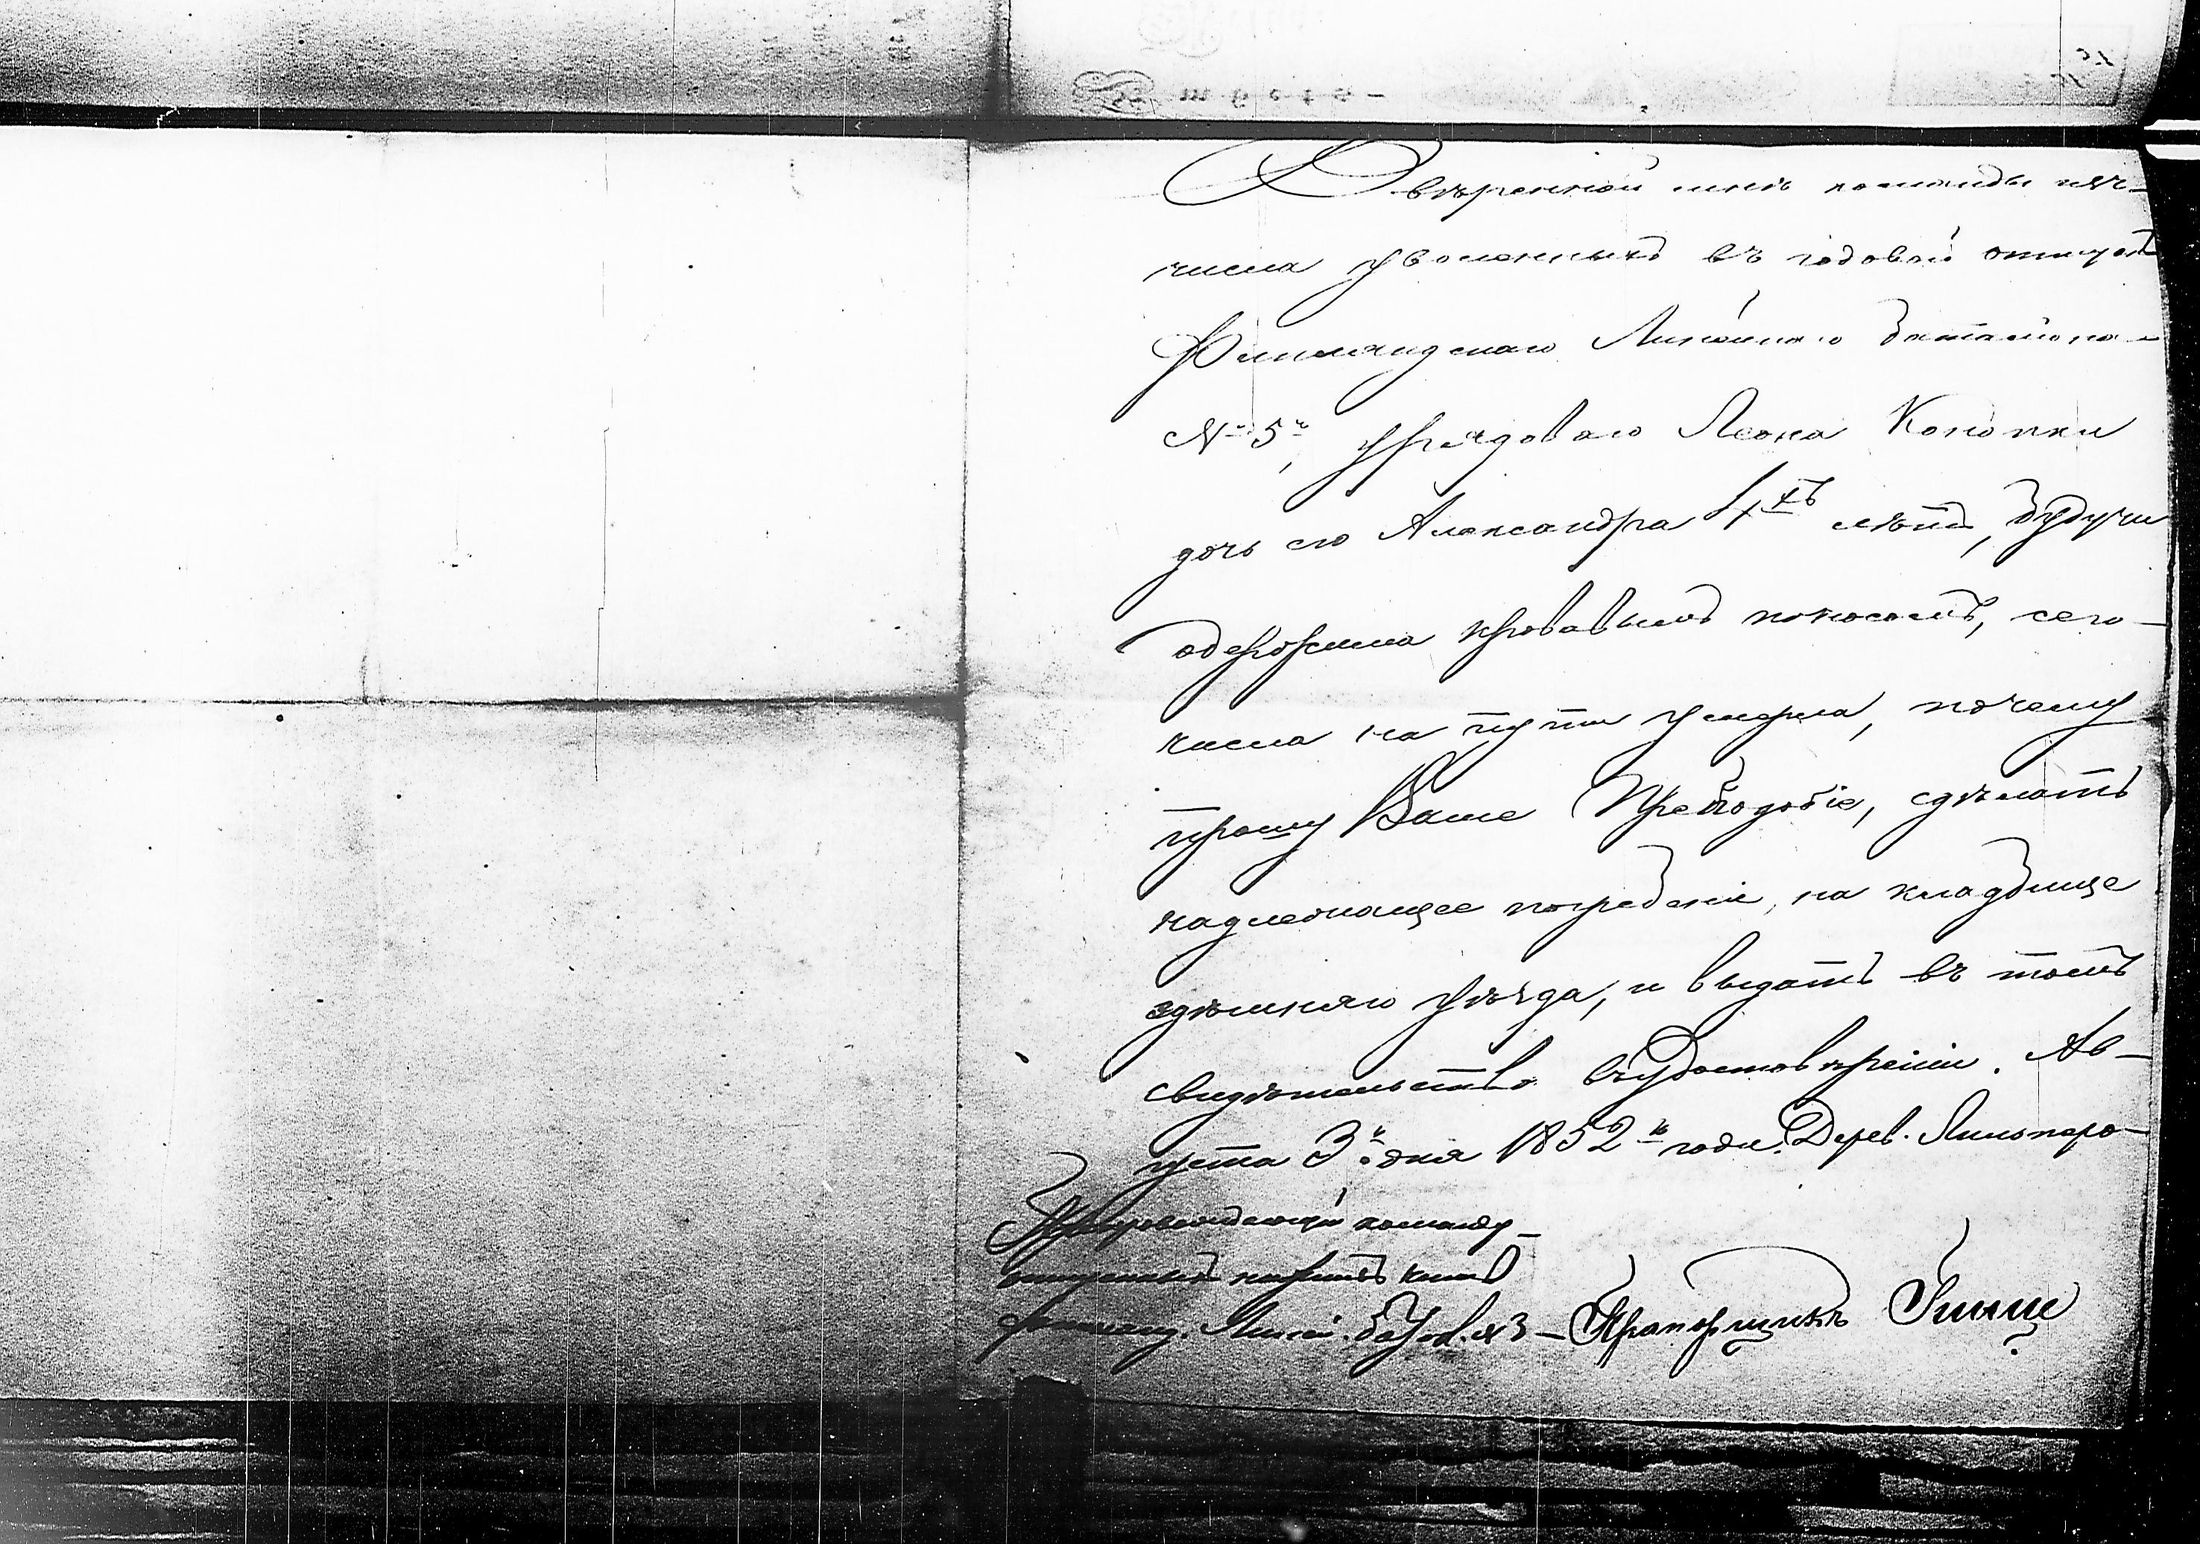 Ввѣренной мнѣ команды изъ
числа уволенныхъ въ годовой отпускъ
Финляндскаго Линейнаго баталіона
№ 5го, рядоваго Леона Конопки
дочь его Александра 4хъ лѣтъ, будучи
одержима кровавымъ поносомъ, сего
числа на пути умерла, почему
прошу Ваше Преподобіе, сдѣлать
надлежащее погребеніе, на кладбище
здѣшняго уѣзда, и выдать въ томъ
свидѣтельство въ удостовѣреніи. Ав-
густа 3го дня 1852го года. Дерев.
Препровождающій команду
отпускныхъ нижнихъ чиновъ
Финлянд. Линей. батал. № 3 - Прапорщикъ